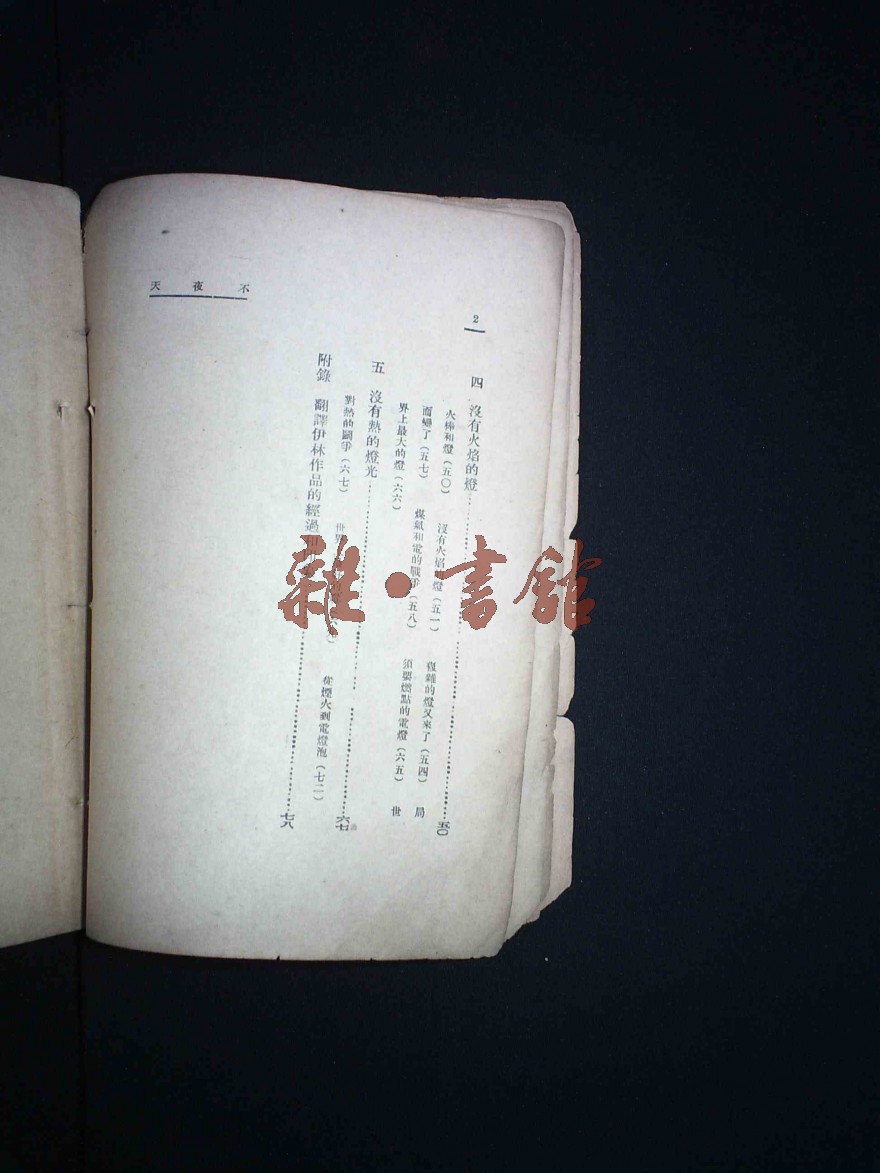 不夜天
2
四 沒有火焰的燈 五〇
火棒和燈(五〇) 沒有火焰 燈(五一) 複雜的燈又來了(五四) 局
面變了(五七) 煤氣和電的戰爭(五八) 須要燃點的電燈(六五) 世
界上最大的燈(六六)
五 沒有熱的燈光 六七
對熱的鬭爭(六七) 世 從煙火到電燈泡(七二)
附錄 翻譯伊林作品的經過 七八
雜·書館